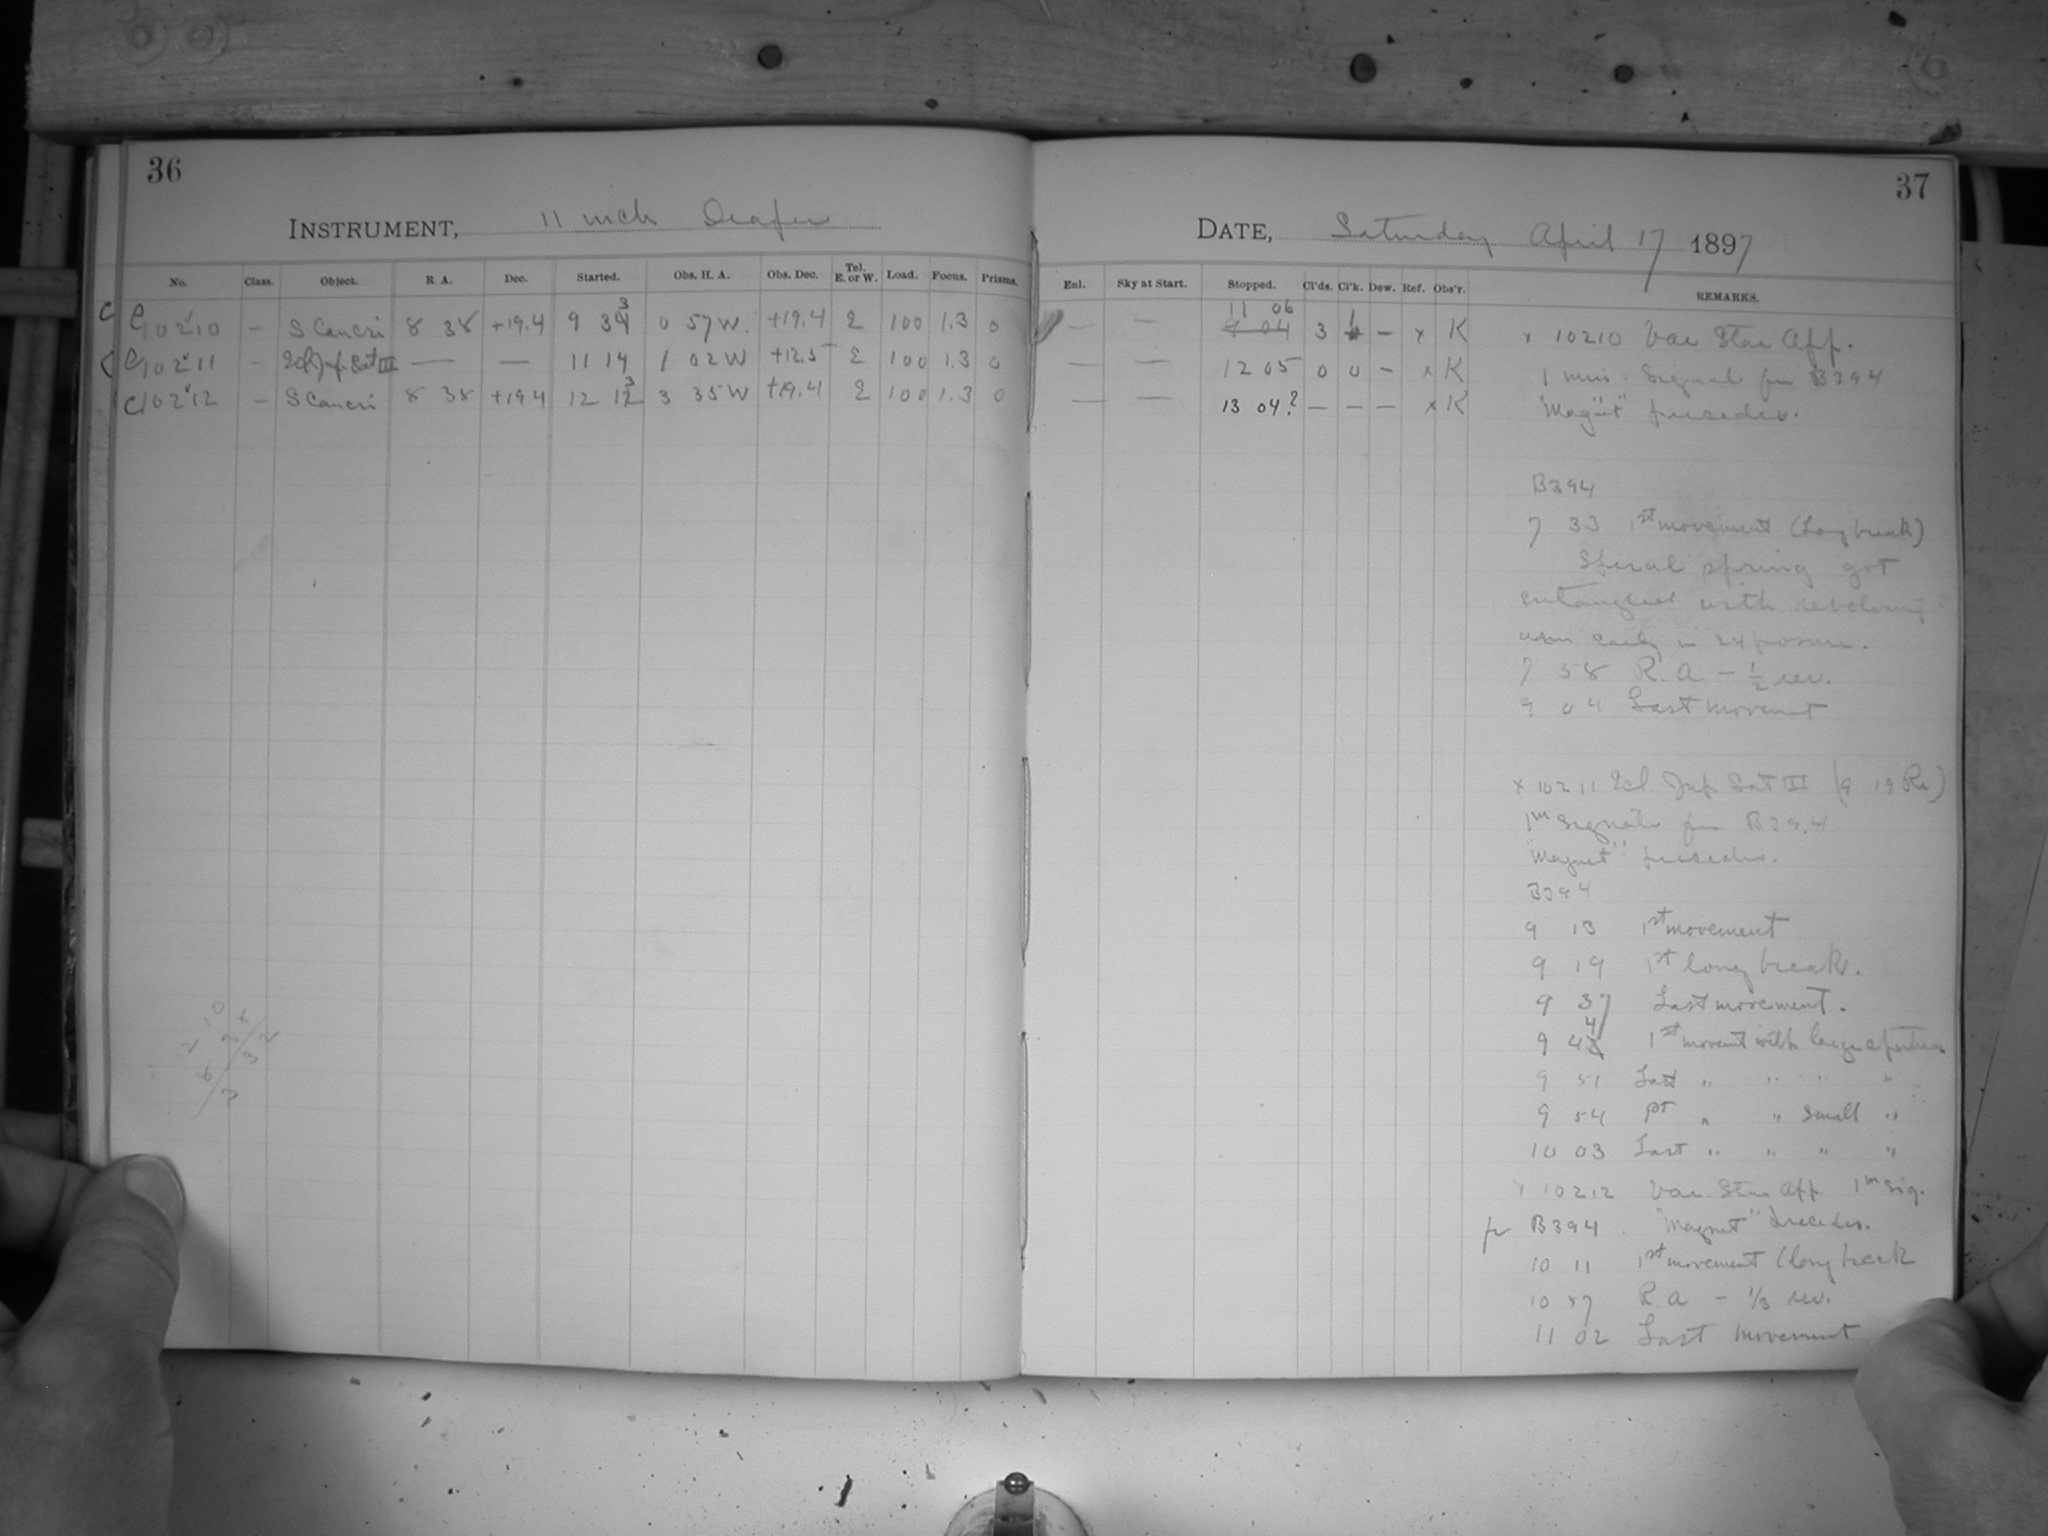 36
INSTRUMENT, 11 inch Draper
No. Class. Object. R. A. Dec. Started. Obs. H. A. Obs. Dec. Tel. E. or W. Load. Focus. Prisms.
C C10210 — S Cancri 8 38 +19.4 9 34 3 0 57 W. +19.4 E 100 1.3 0
C C10211 — Ecl. Jup. Sat III — — 11 14 1 02 W +12.5 E 100 1.3 0
C10212 — S Cancri 8 38 +19.4 12 12 3 3 35 W +19.4 E 100 1.3 0
37
DATE, Saturday April 17 1897
Enl. Sky at Start. Stopped. Cl'ds. Cl'k. Dew. Ref. Obs'r. REMARKS.
11 06
— — 9 04 3 1 — x K x 10210 Var Star App.
— — 12 05 0 0 — x K 1 min. Signal for B394
— — 13 04? — — — x K "Magnet" precedes.
B394
7 33 1st movement (Long break)
Spiral spring got
entangled with revolving
arm early in exposure.
7 58 R. A — 1/2 rev.
9 04 Last movement
x 10211 Ecl. Jup. Sat III (9 19 Re)
1m signal for B394
"Magnet" precedes.
B394
9 13 1st movement
9 19 1st long break.
9 37 Last movement.
9 44 1st movemt with large aperture
9 51 Last " " " "
9 54 1st " " small "
10 03 Last " " " "
x 10212 Var. Star App 1m sig.
for B394 "Magnet" precedes.
10 11 1st movement (long break
10 57 R. A — 1/3 rev.
11 02 Last movement